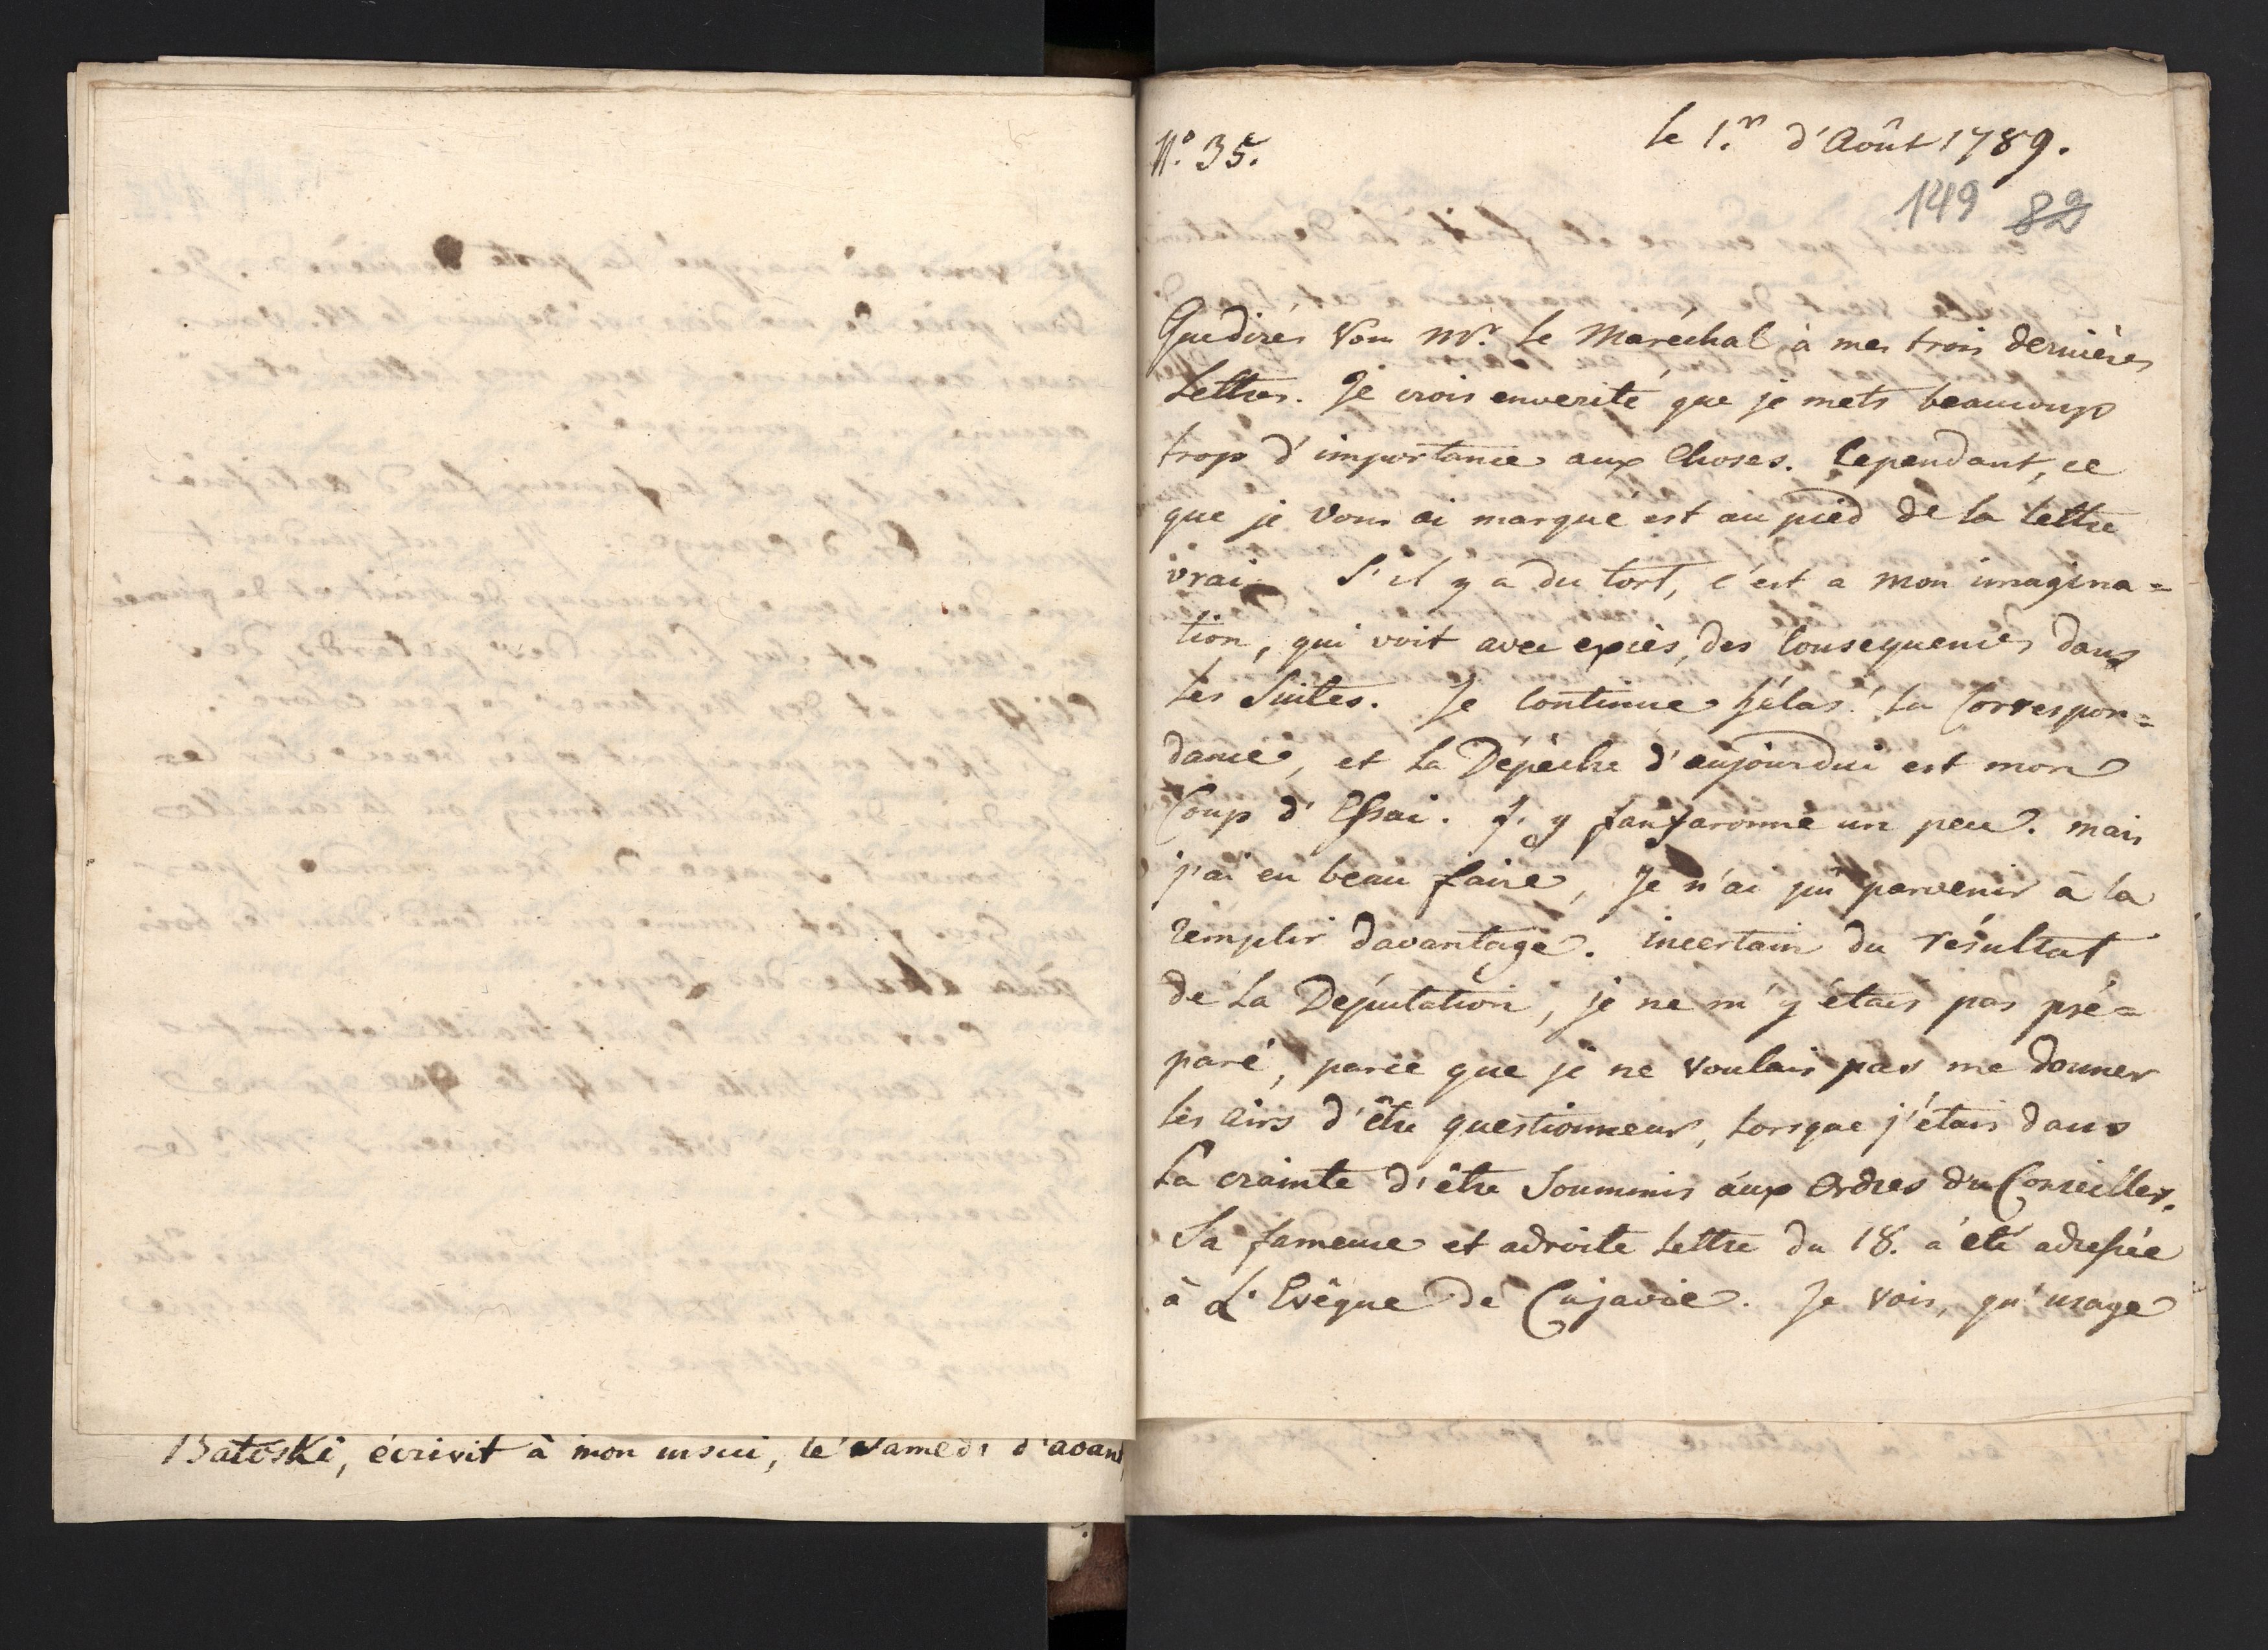 Batoski, écrivit à mon insçu, le samedi d'avant
N.° 35.
le 1.er d'Août 1789.
149 82
Que dirés vous Mr. le Maréchal à mes trois dernières
Lettres. Je crois enverité que je mets beaucoup
trop d'importance aux Choses. Cependant, ce
que je vous ai marqué est au pied de la lettre
vrai. S'il y a du tort, c'est a mon imagina=
tion, qui voit avec excès, des Consequences dans
les Suites. Je Continue hélas! la Correspon=
dance, et la Dépêche d'aujourdui est mon
Coup d'Essai. J'y fanfaronne un peu. mais
j'ai eu beau faire, Je n'ai pû parvenir à la
remplir davantage. incertain du résultat
de la Députation, je ne m'y étais pas pré=
paré, parce que je ne voulais pas me donner
les airs d'être questionneur, lorsque j'étais dans
la crainte d'être Soummis aux Ordres du Conseiller.
Sa fameuse et adroite Lettre du 18. a été adressée
à L'Evêque de Cujavie. Je vois, qu'usage